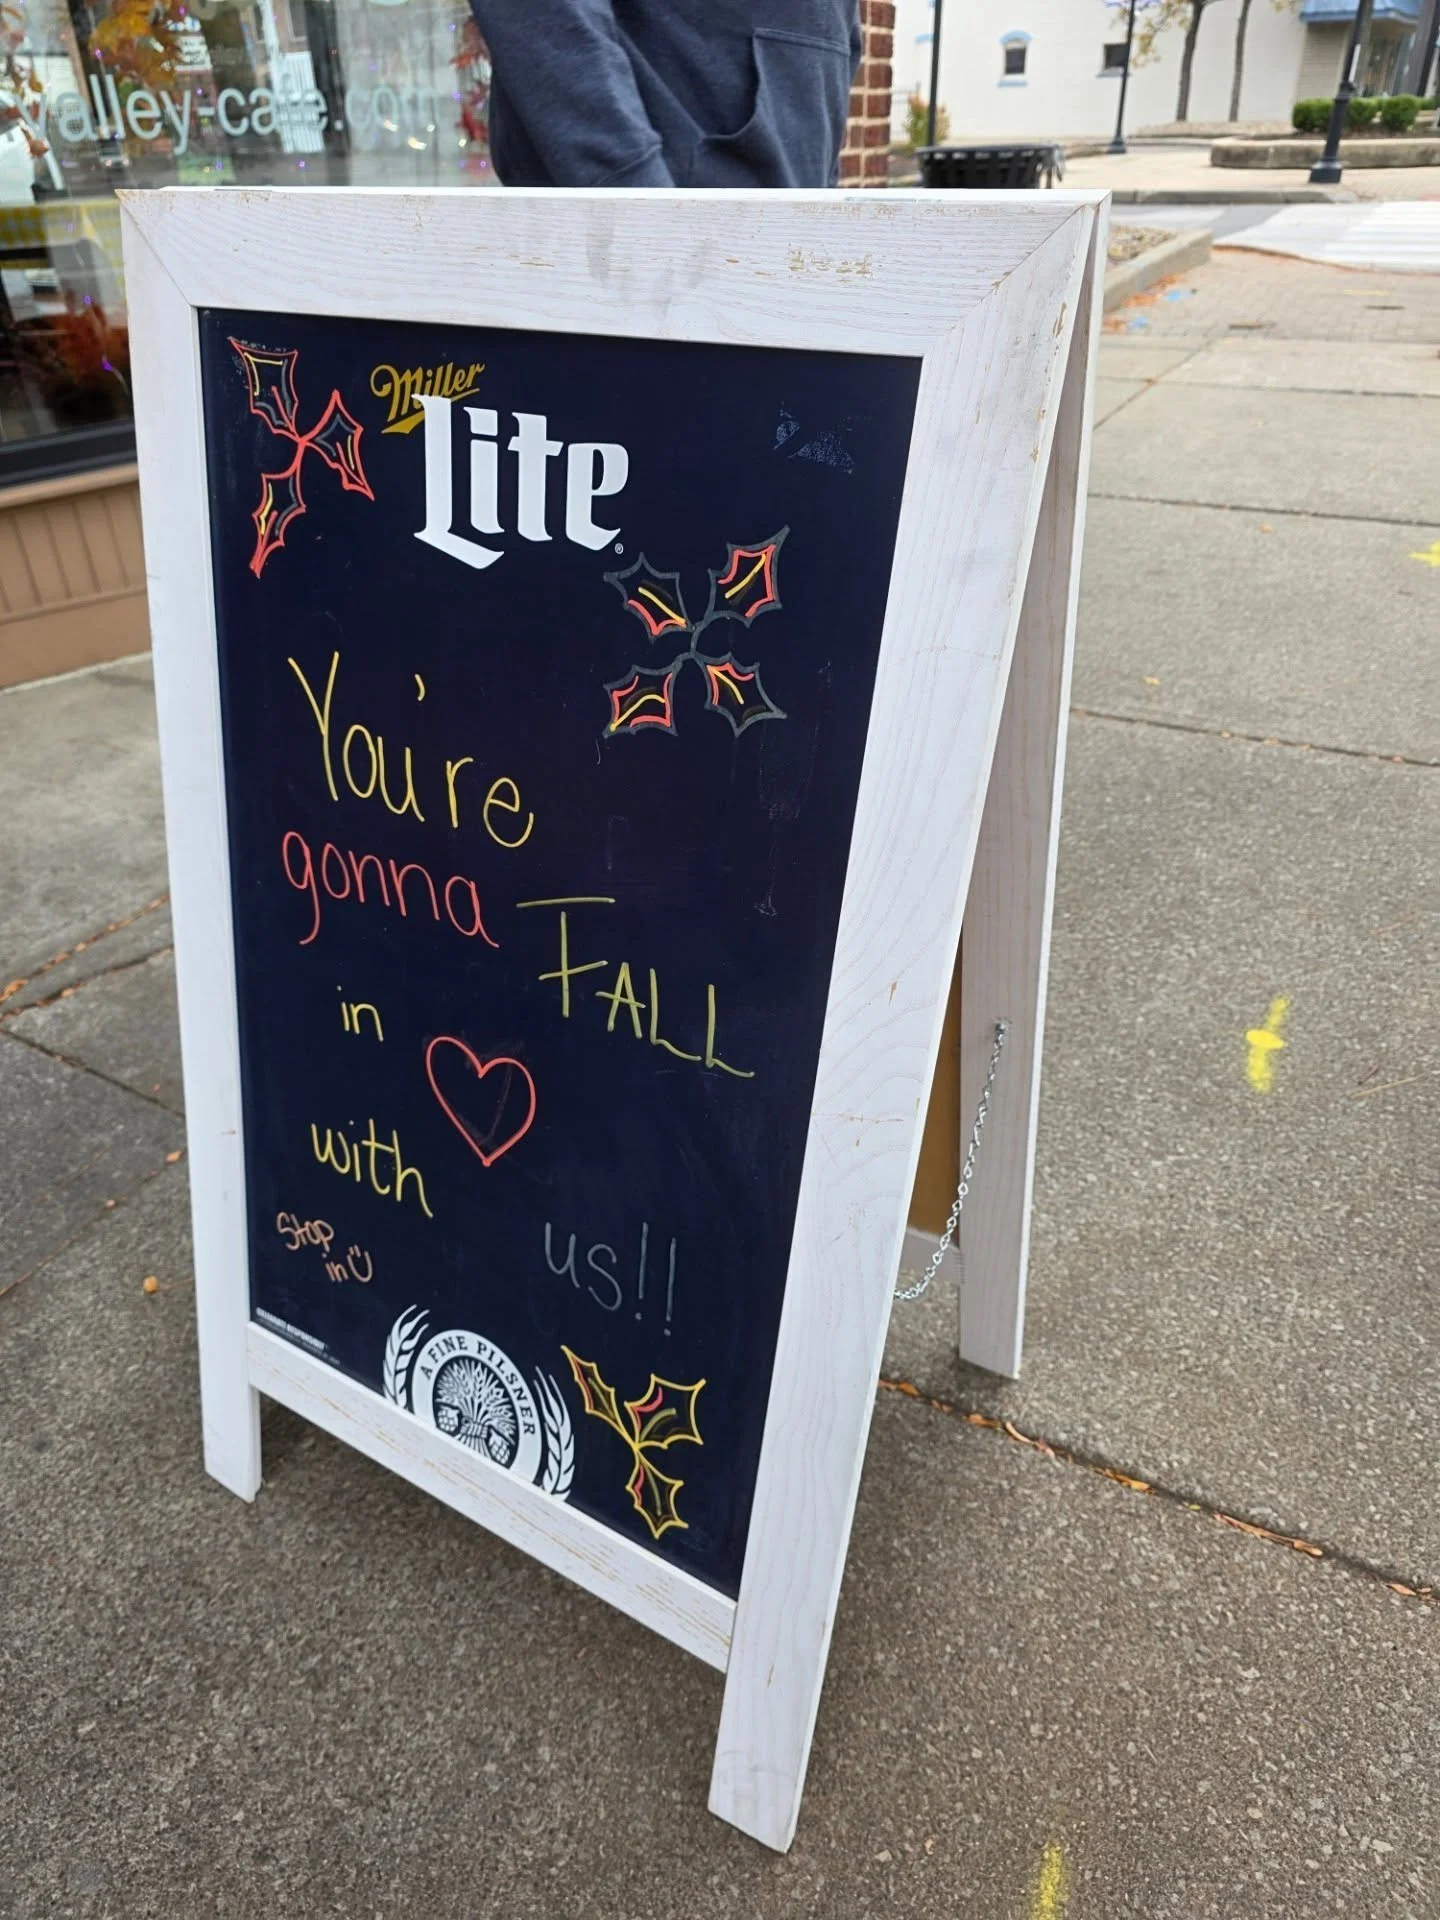 valley-cafe.com
Miller
Lite
You're
gonna
FALL
in
with
us!!
Stop
in
A FINE PILSNER